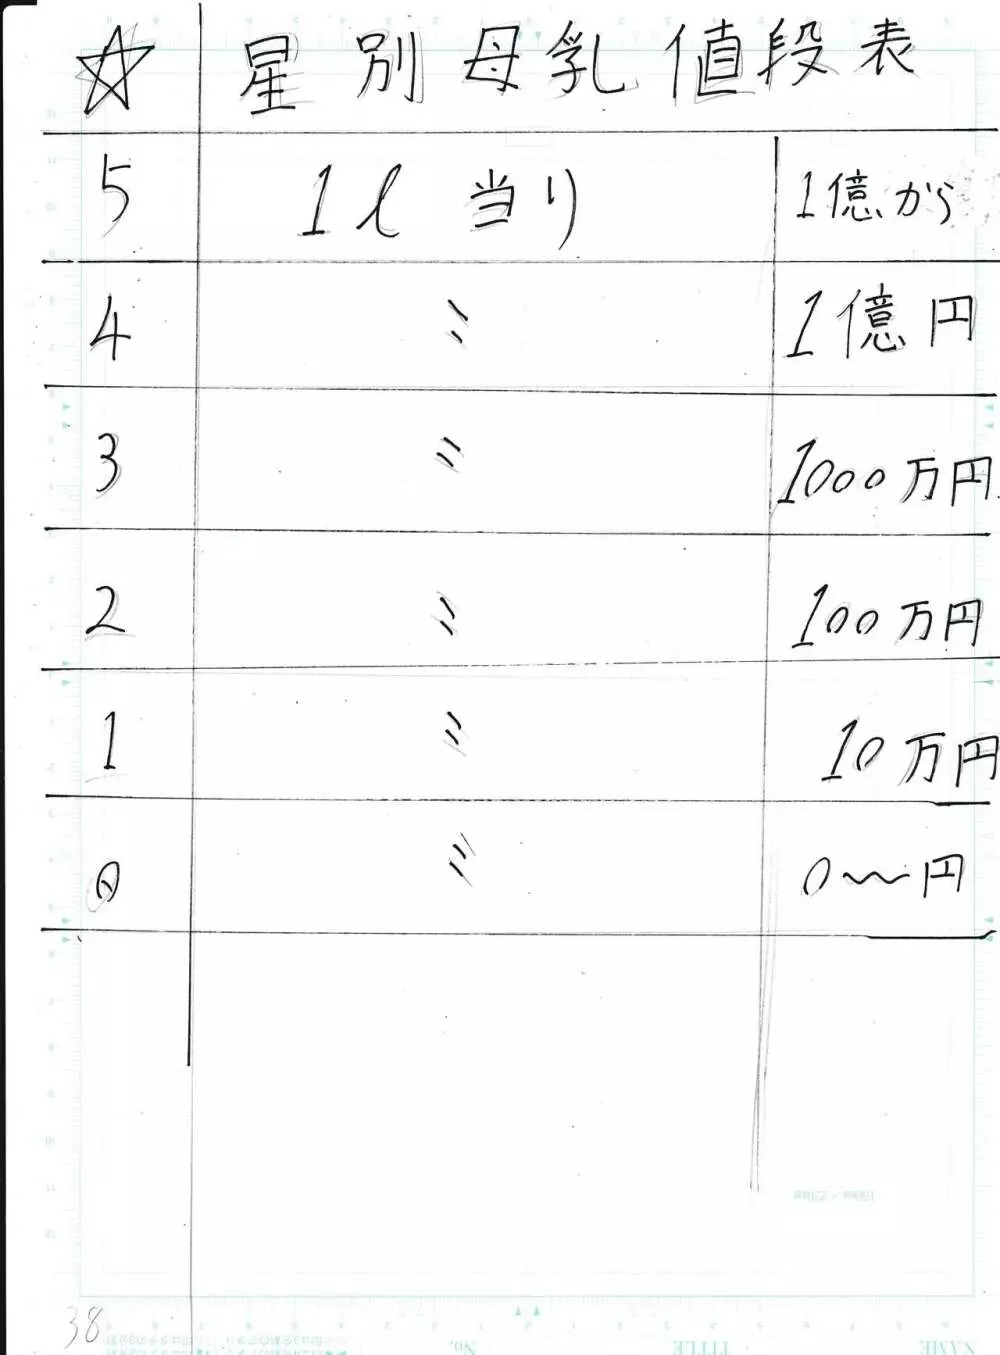 ☆ 星別母乳値段表
5 1ℓ 当り 1億から
4 〃 1億円
3 〃 1000万円
2 〃 100万円
1 〃 10万円
0 〃 0〜円
38
150mm×220mm
No. TITLE NAME